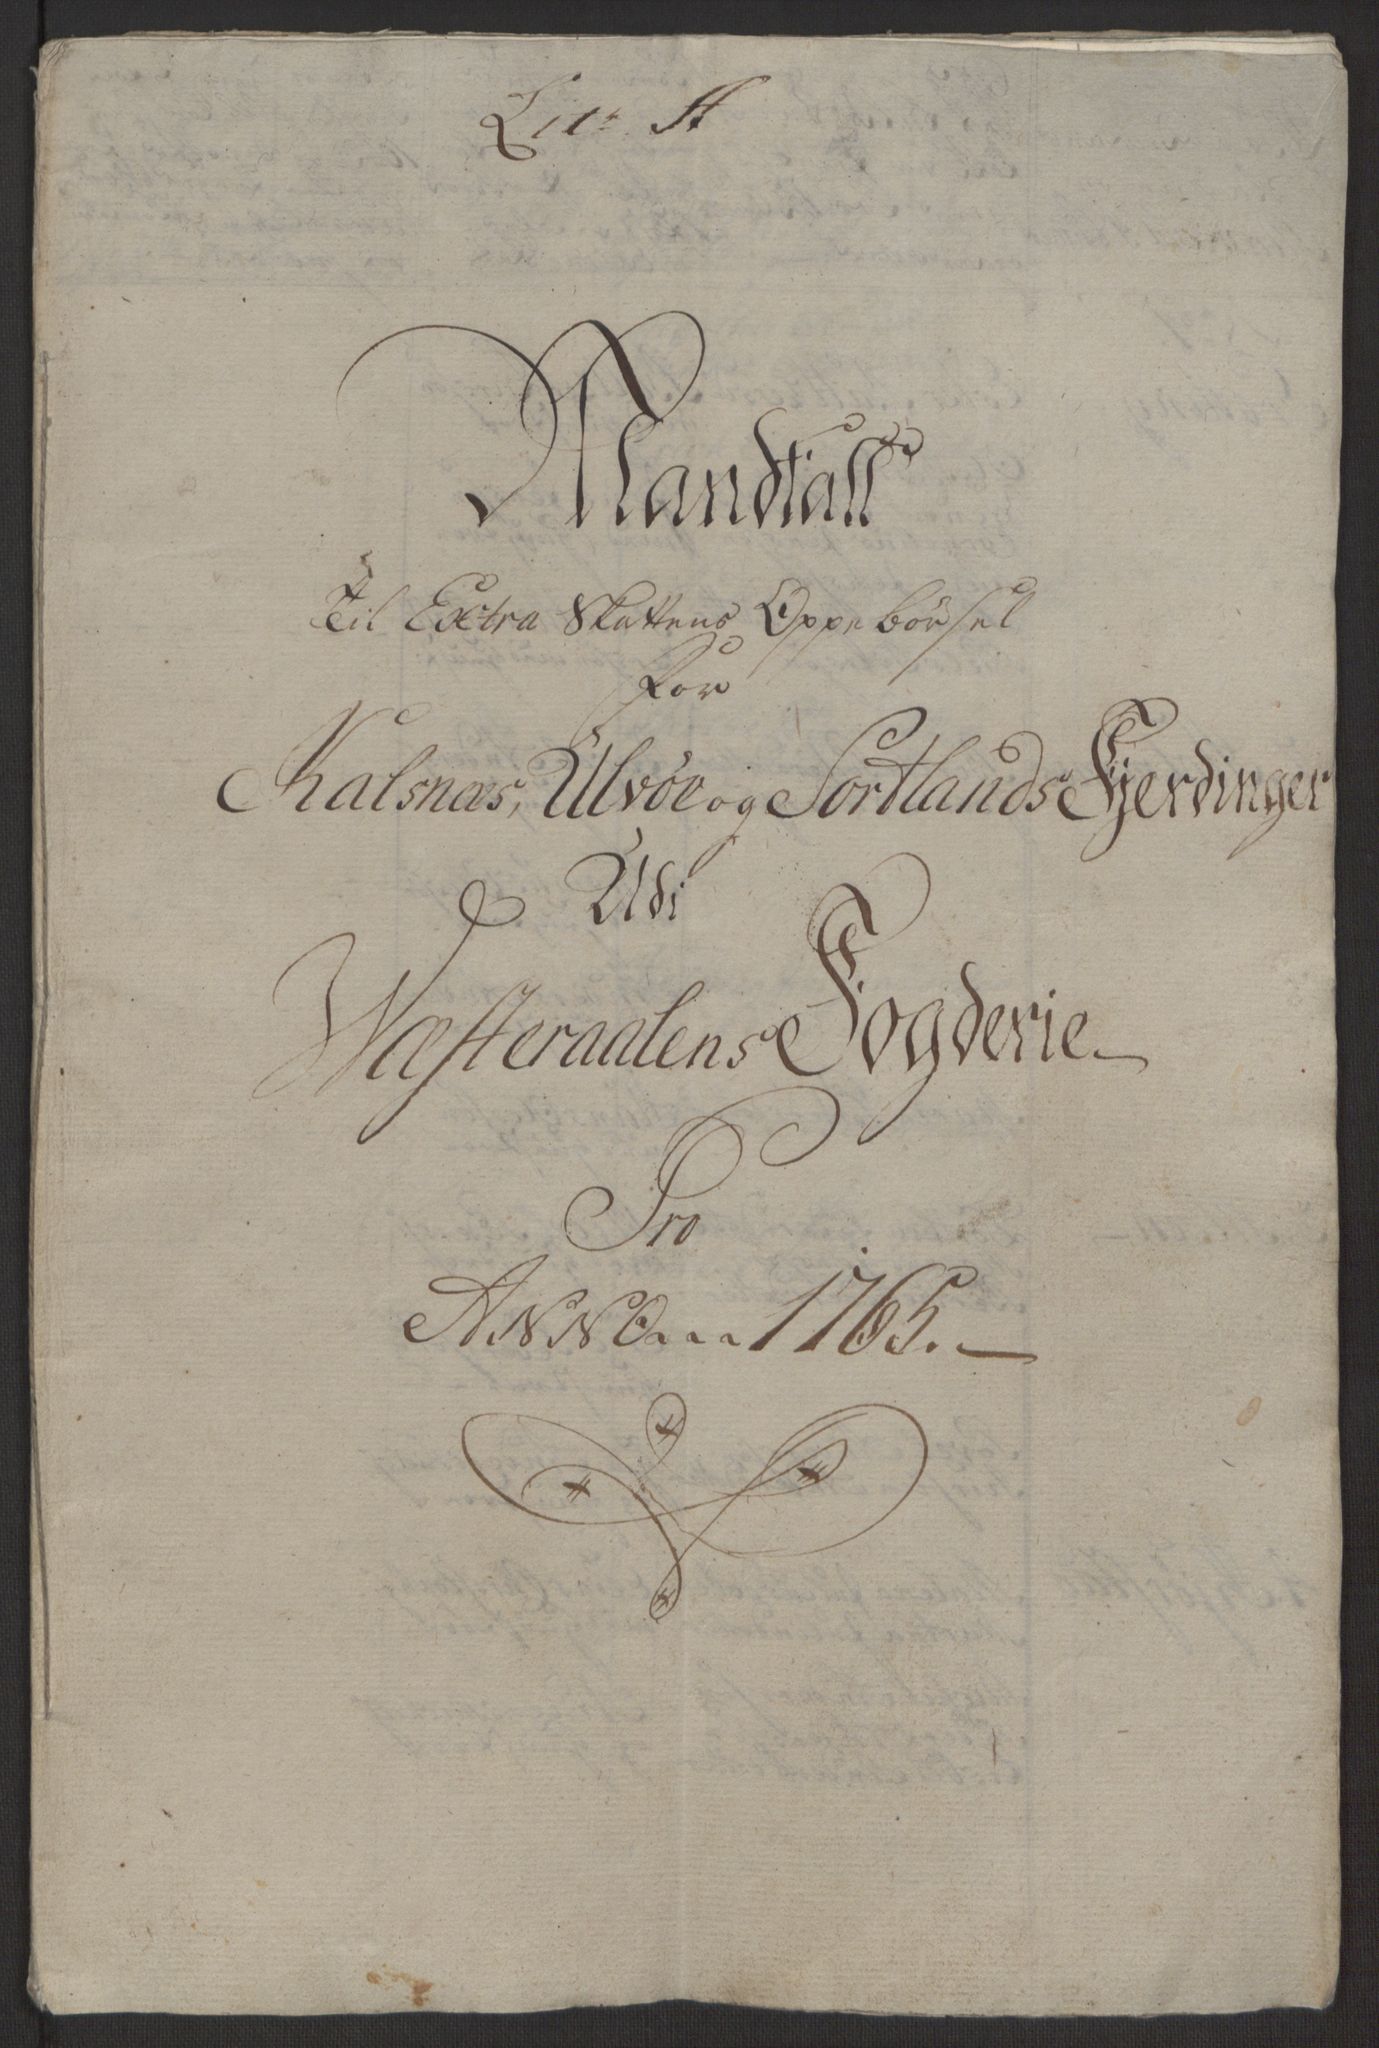 Litr A
Mandtall
Til Extra Skattens Oppebörsel
for
Kalsnæs, Ulvöe og Sortlands Fjerdinger
Udi
Wæsteraalens Fogderie
Pro
Anno 1765.